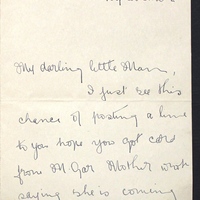 My darling little Mam,
I just see this
chance of posting a line
to you hope you got card
from M. Gar Mother wrote
saying she is coming